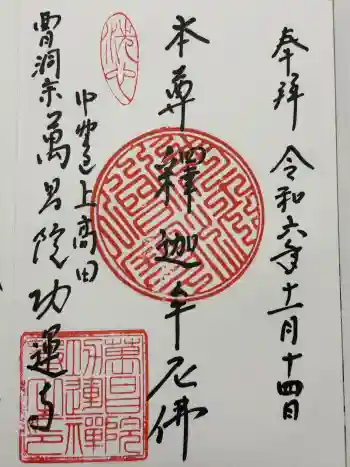 奉拝 令和六年十一月十四日
本尊 釋迦牟尼佛
中野上高田
曹洞宗 萬昌院功運寺
萬昌院功運禅寺之印